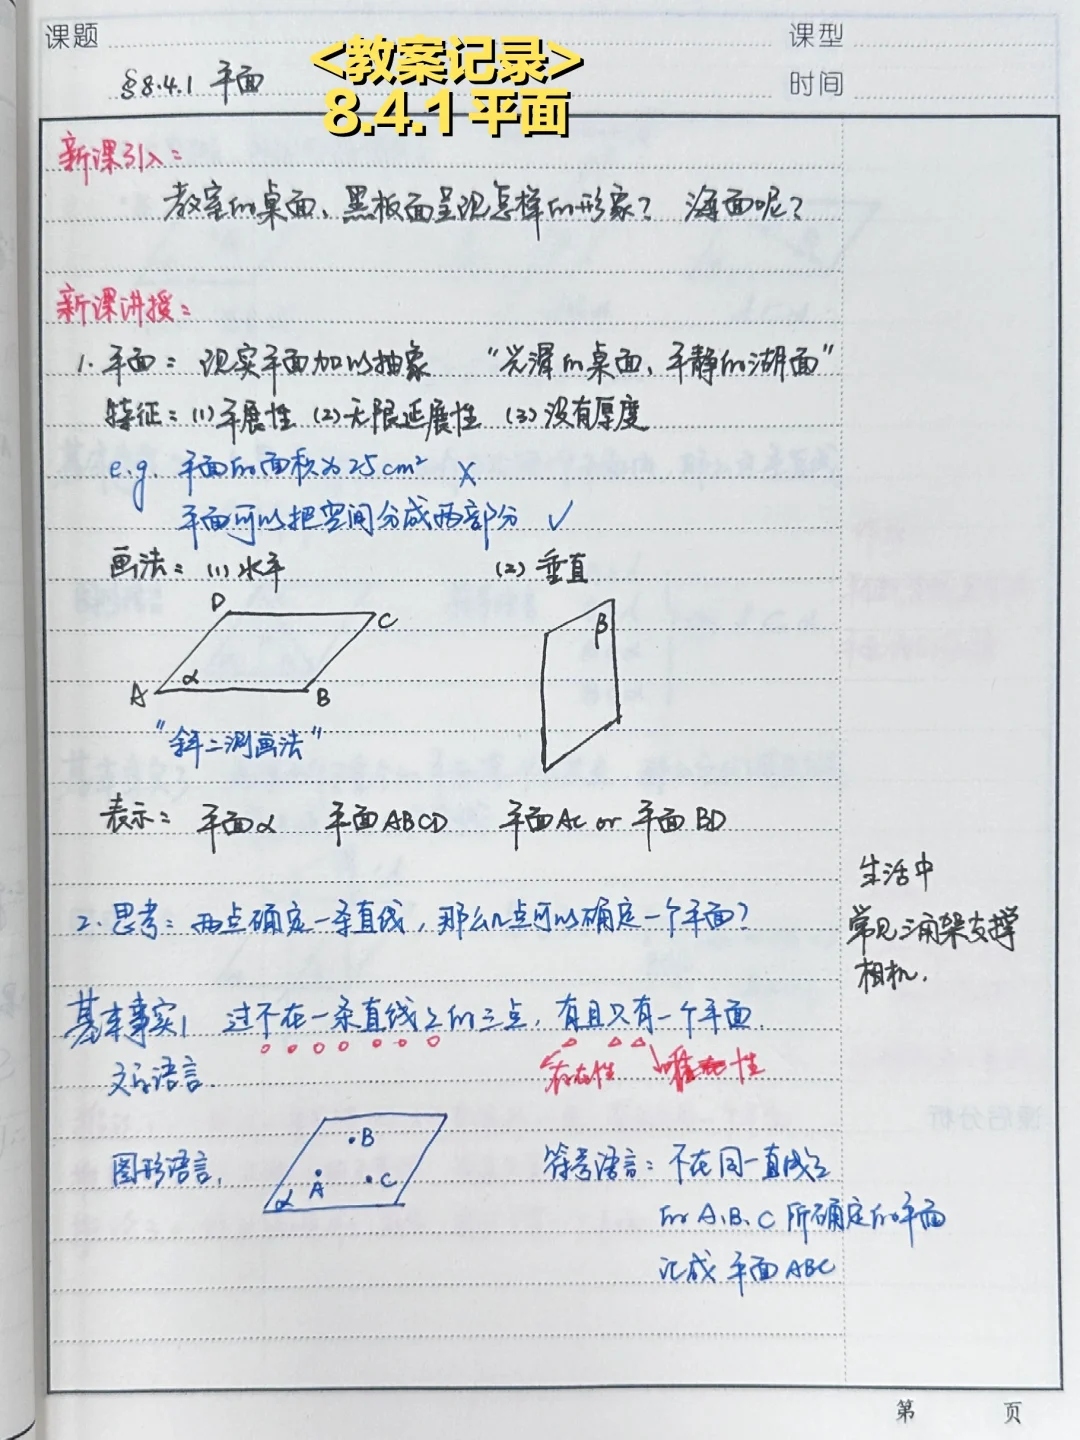 课题
课型
<教案记录>
8.4.1平面
§8.4.1 平面
时间
新课引入:
教室的桌面、黑板面呈现怎样的形象? 海面呢?
新课讲授:
1.平面: 现实平面加以抽象 "光滑的桌面、平静的湖面"
特征: (1)平展性 (2)无限延展性 (3)没有厚度
e.g. 平面的面积为25cm² ×
平面可以把空间分成两部分 ✓
画法: (1)水平 (2)垂直
D C β
A α B
"斜二测画法"
表示: 平面α 平面ABCD 平面AC or 平面BD
生活中
常见三角架支撑
相机.
2.思考: 两点确定一条直线, 那么几点可以确定一个平面?
基本事实1 过不在一条直线上的三点, 有且只有一个平面.
文字语言. 存在性 唯一性
图形语言. B A C α
符号语言: 不在同一直线上
的A、B、C所确定的平面
记成 平面ABC
第 页